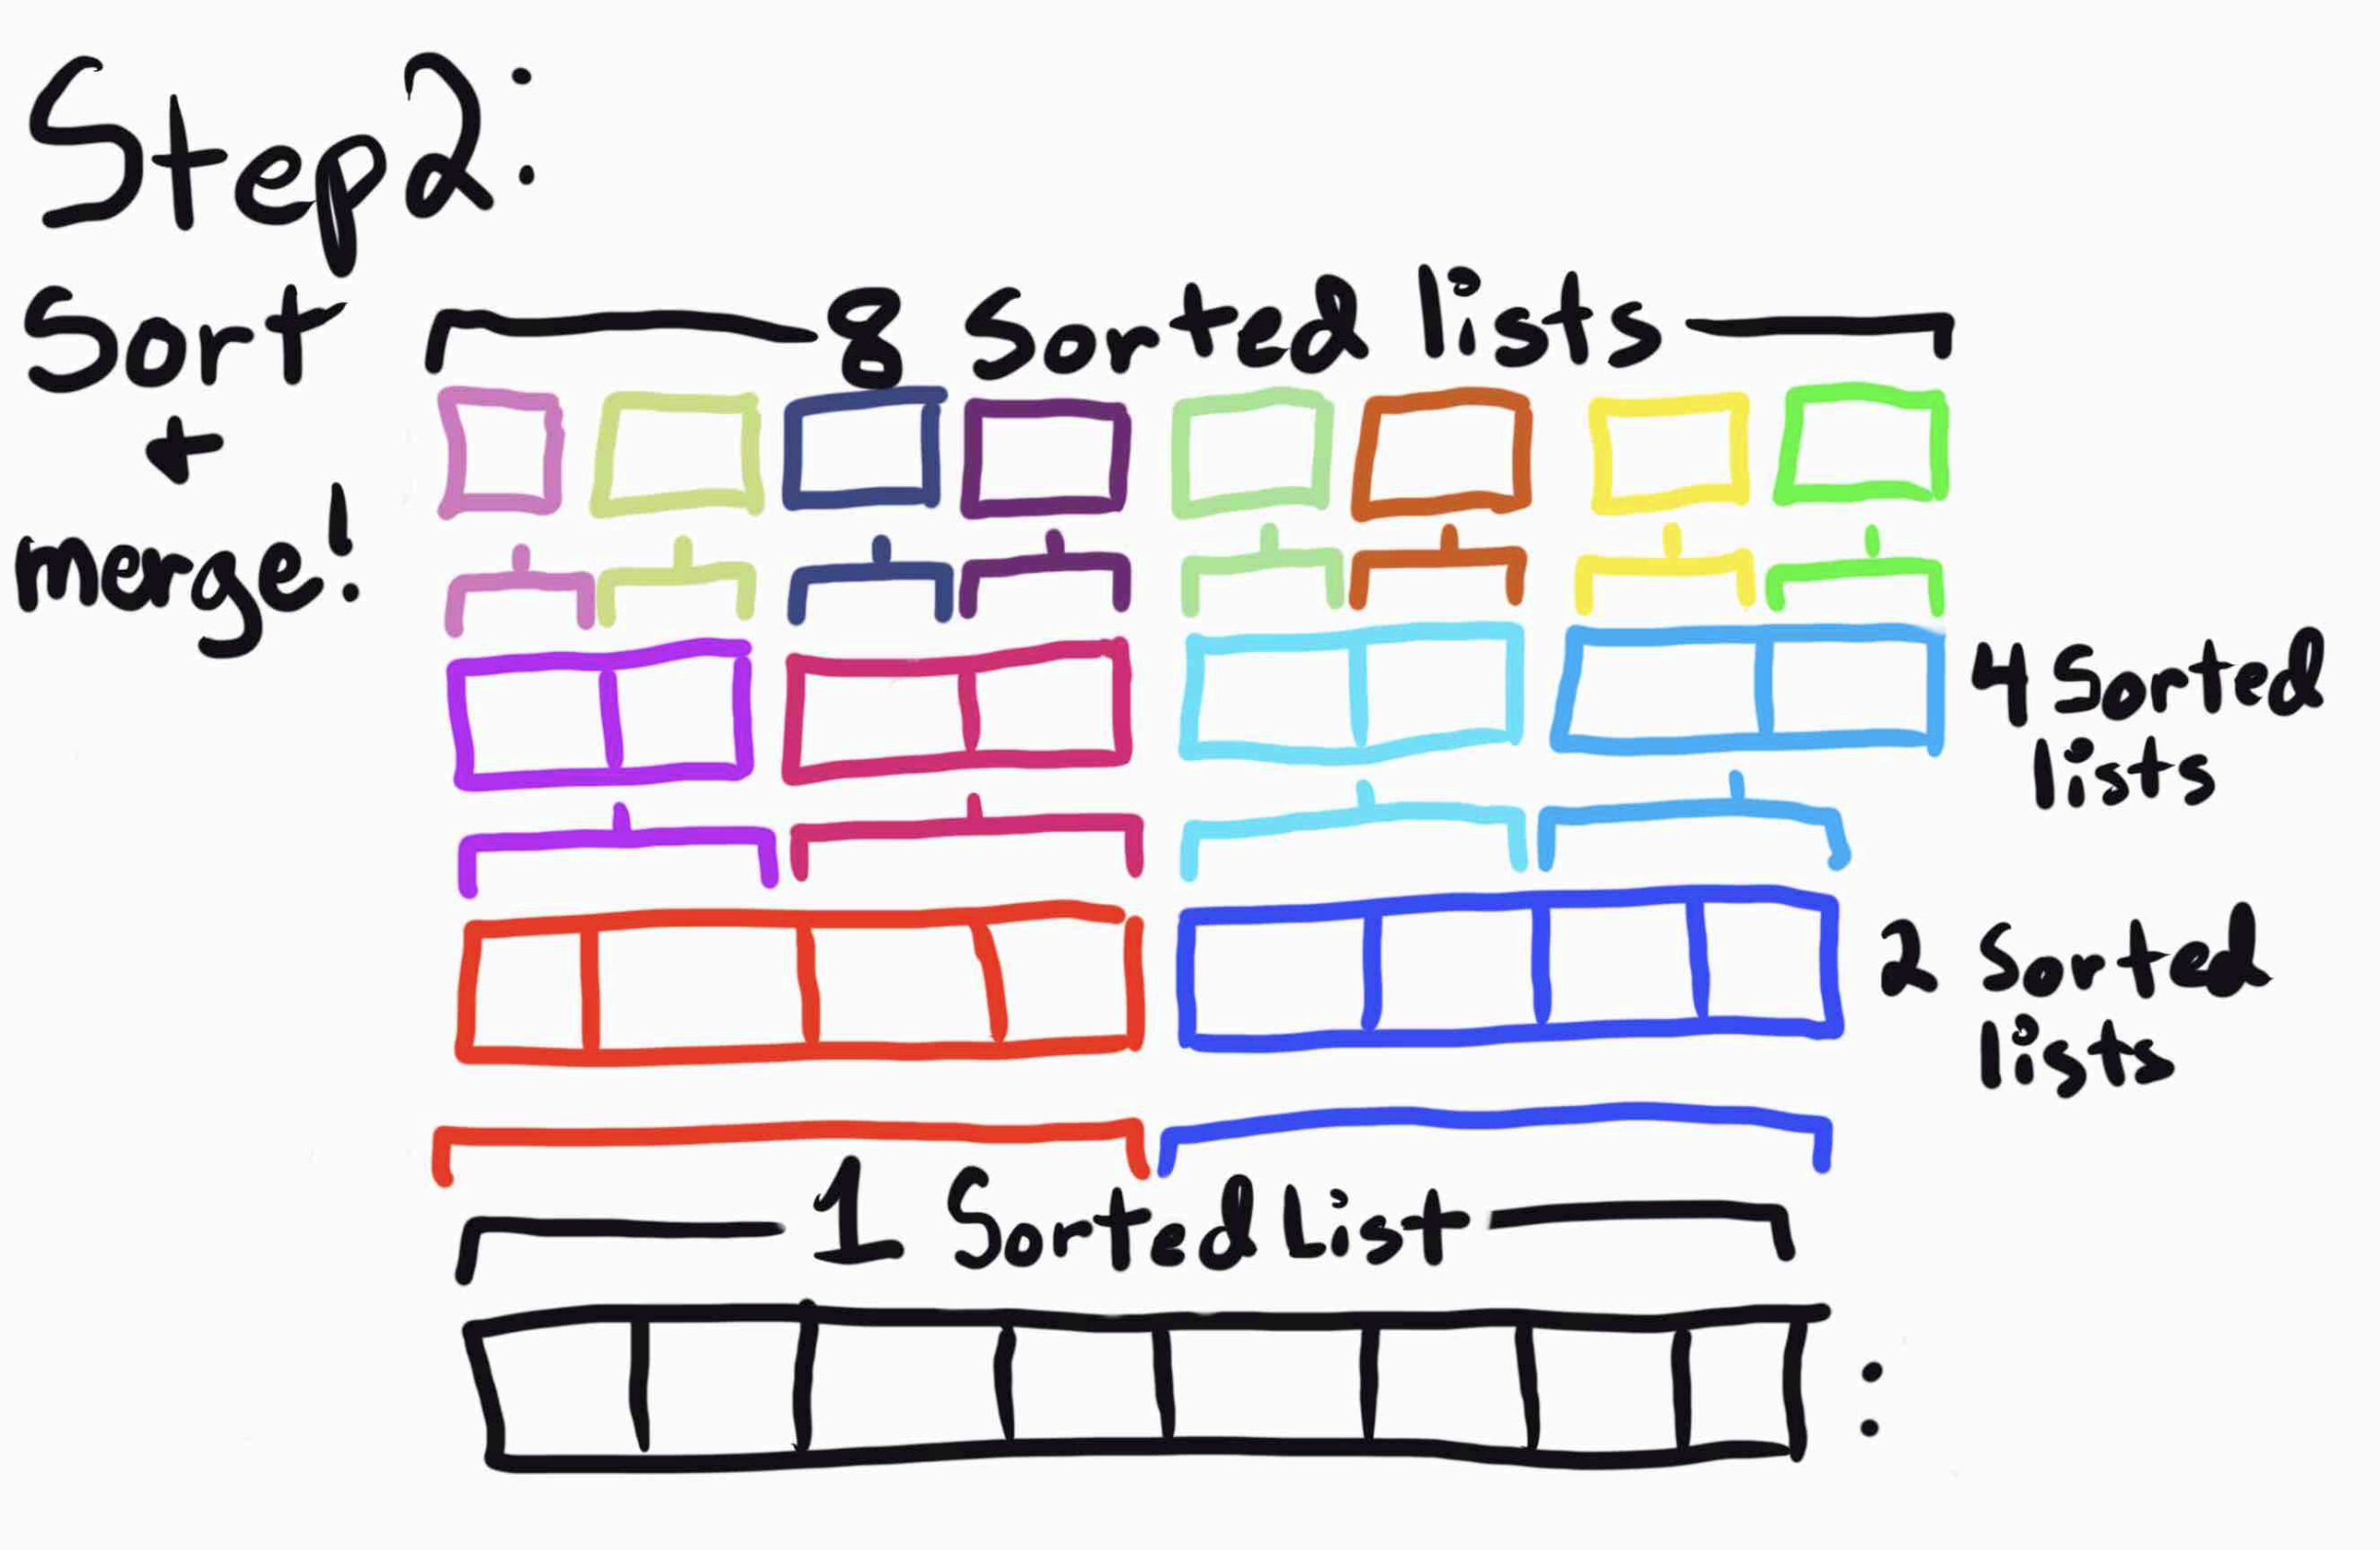 Step2:
Sort
+
merge!
8 Sorted lists
4 Sorted
lists
2 Sorted
lists
1 Sorted List
: